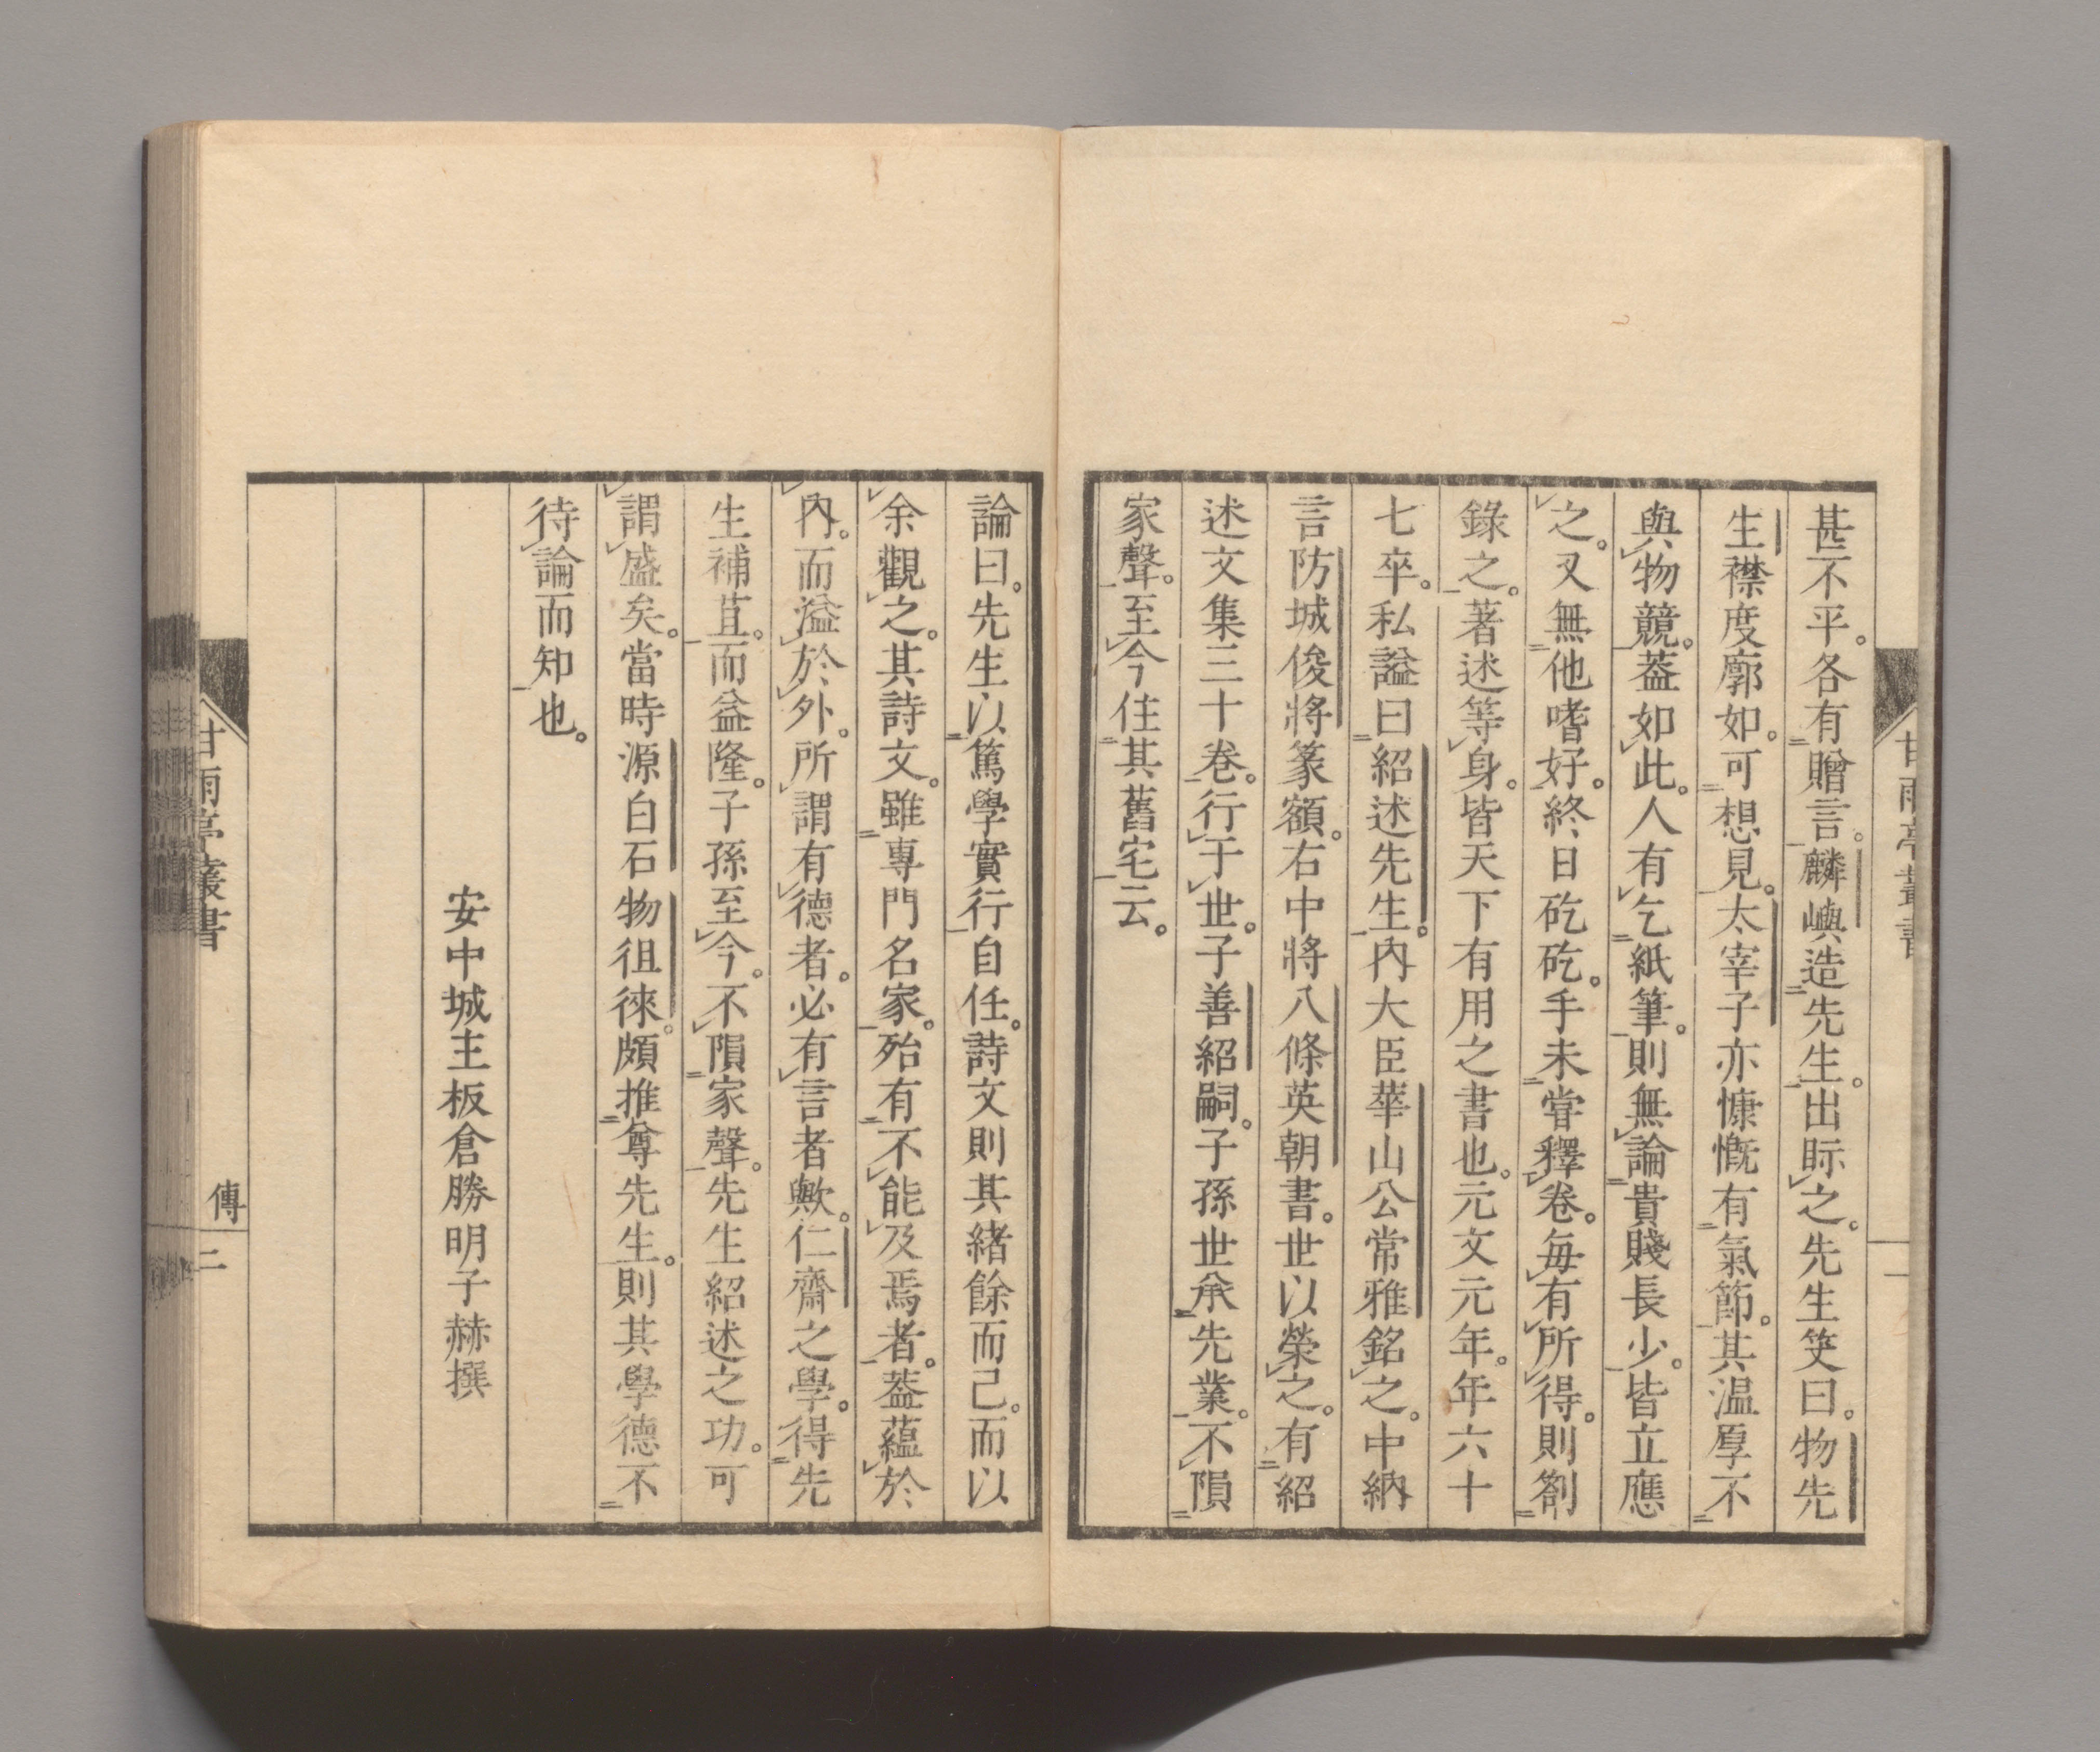 甘雨亭叢書
甚不平。各有贈言。麟嶼造先生。出眎之。先生笑曰。物先
生襟度廓如。可想見。太宰子亦慷慨有氣節。其温厚不
與物競。葢如此。人有乞紙筆。則無論貴賤長少。皆立應
之。又無他嗜好。終日矻矻。手未甞釋卷。每有所得。則劄
錄之。著述等身。皆天下有用之書也。元文元年。年六十
七卒。私謚曰紹述先生。內大臣華山公常雅銘之。中納
言防城俊將篆額。右中將八條英朝書。世以榮之。有紹
述文集三十卷。行于世。子善紹嗣。子孫世承先業。不隕
家聲。至今住其舊宅云。
論曰。先生以篤學實行自任。詩文則其緒餘而已。而以
余觀之。其詩文。雖專門名家。殆有不能及焉者。葢蘊於
內。而溢於外。所謂有德者。必有言者歟。仁齋之學。得先
生補苴。而益隆。子孫至今。不隕家聲。先生紹述之功。可
謂盛矣。當時源白石物徂徠。頗推尊先生。則其學德不
待論而知也。
安中城主板倉勝明子赫撰
甘雨亭叢書
傳
二